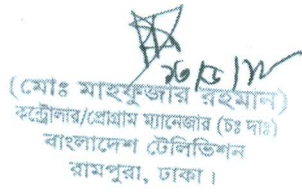 (মোঃ মাহফুজার রহমান)
কন্ট্রোলার/প্রোগ্রাম ম্যানেজার (চঃ দাঃ)
বাংলাদেশ টেলিভিশন
রামপুরা, ঢাকা।